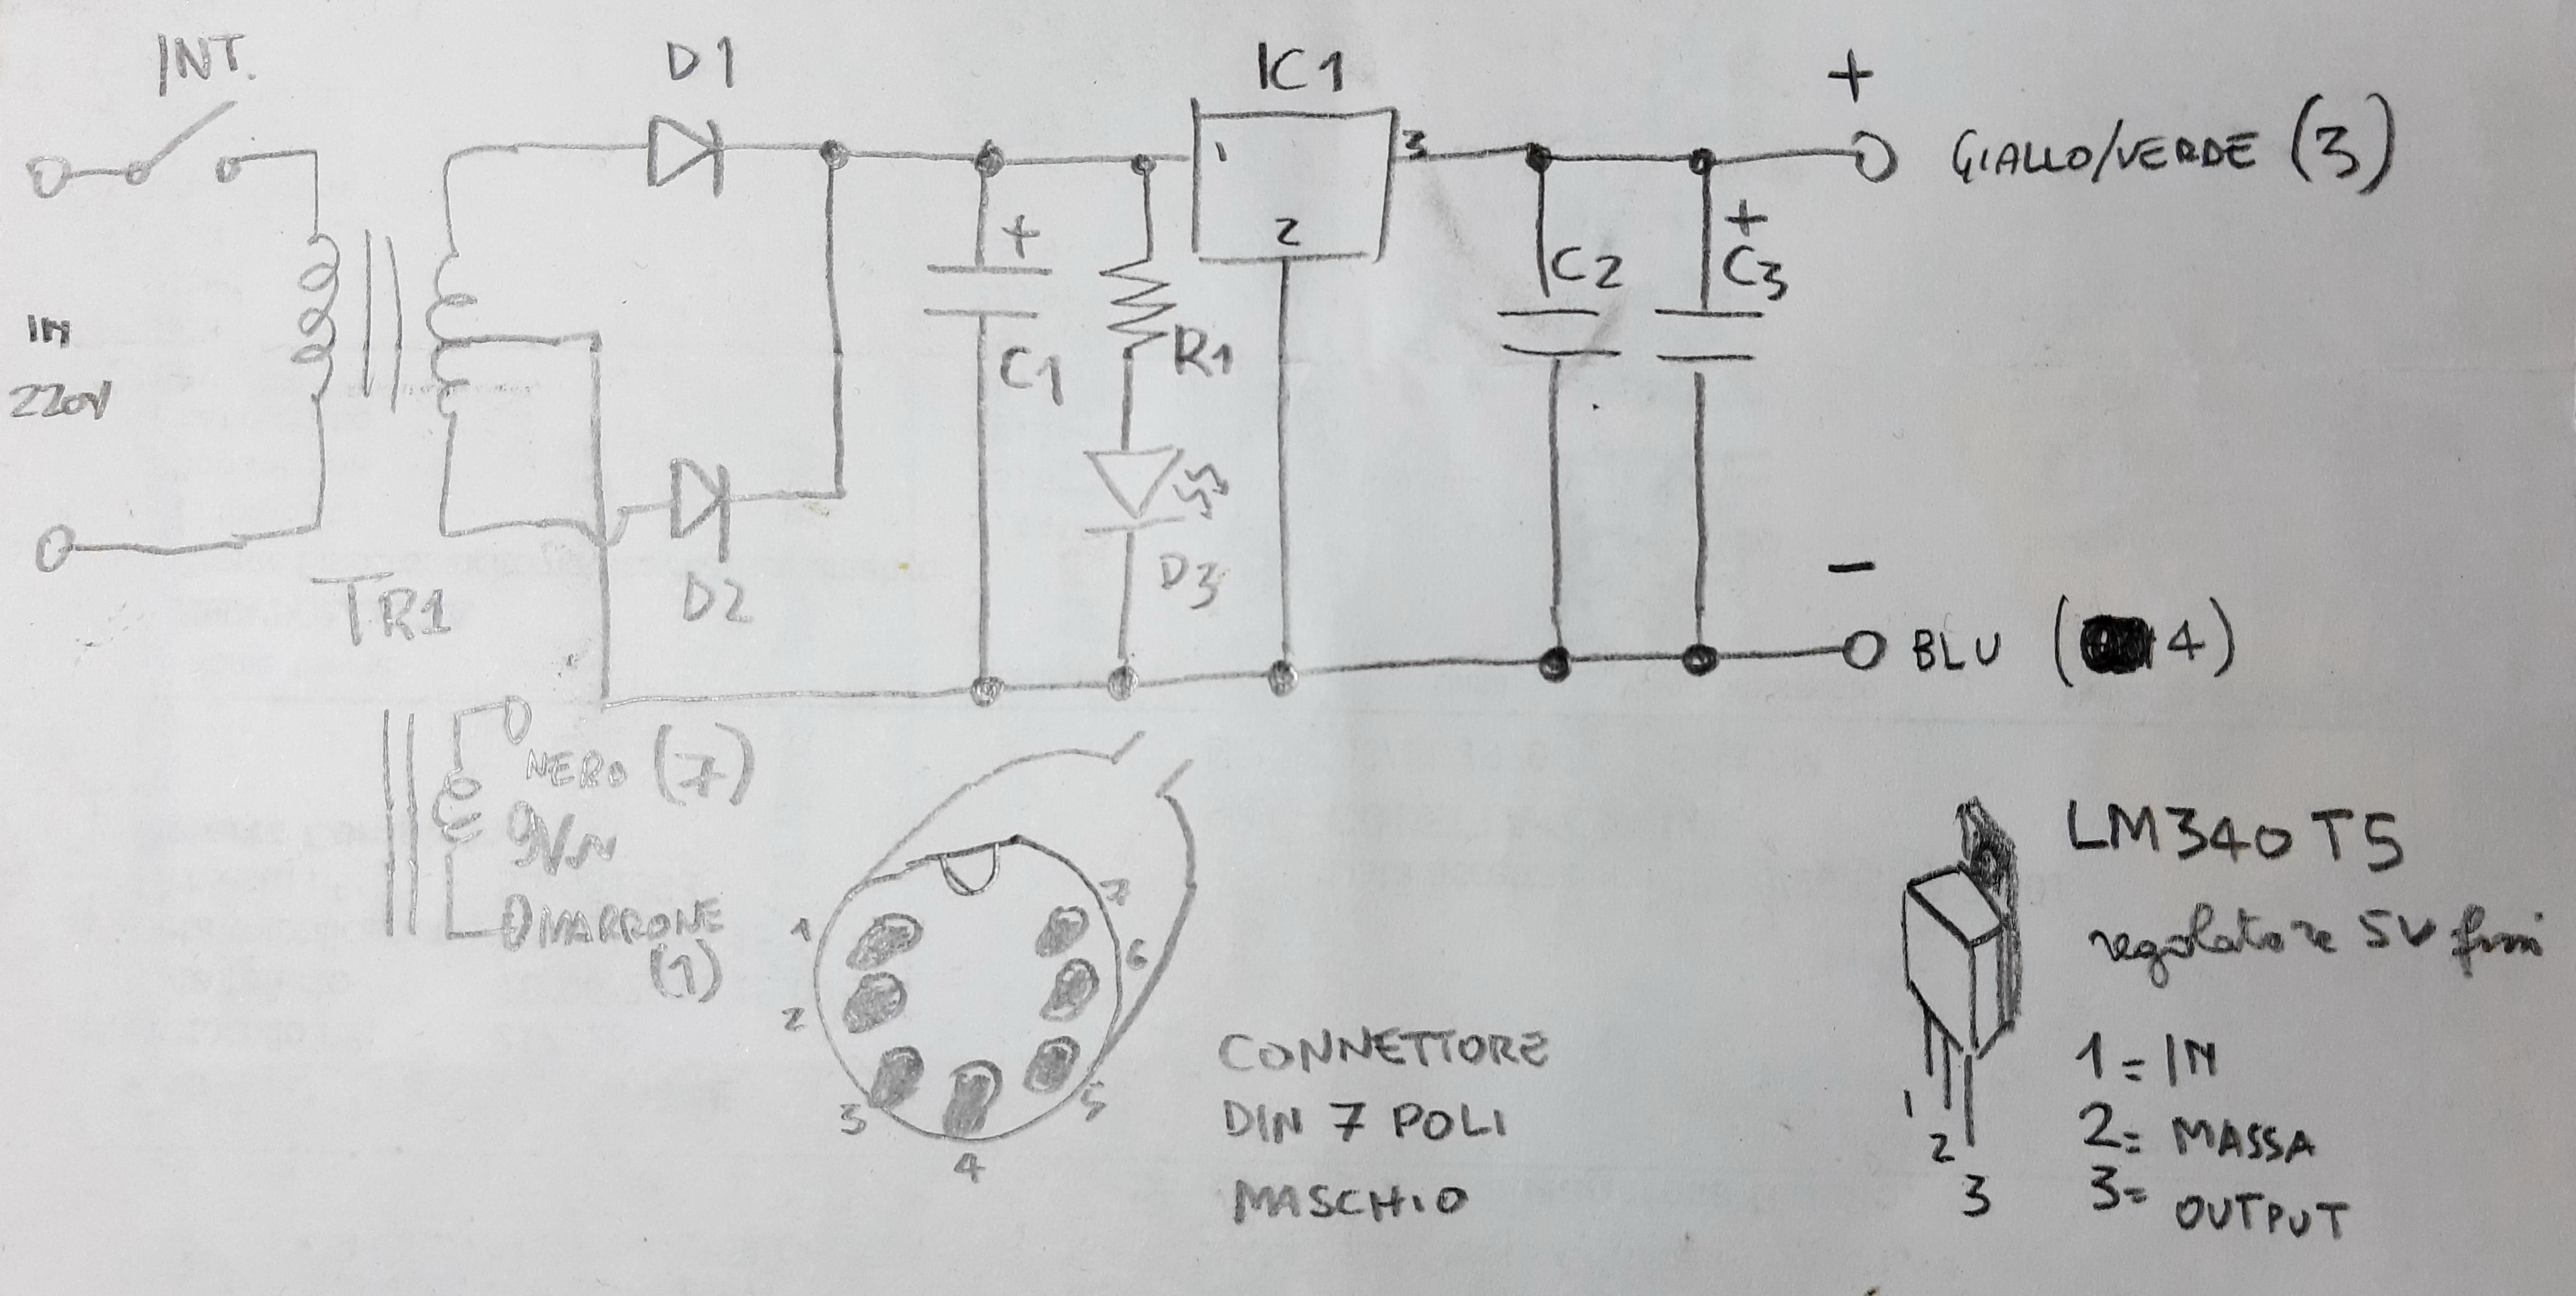 INT.
D1
IC1
+
1
3
2
GIALLO/VERDE (3)
IN
220V
+
C1
R1
C2
+
C3
D2
D3
TR1
-
BLU (4)
NERO (7)
9V~
MARRONE
(1)
1
2
3
4
5
6
7
CONNETTORE
DIN 7 POLI
MASCHIO
LM340T5
regolatore 5V
1
2
3
1= IN
2= MASSA
3= OUTPUT